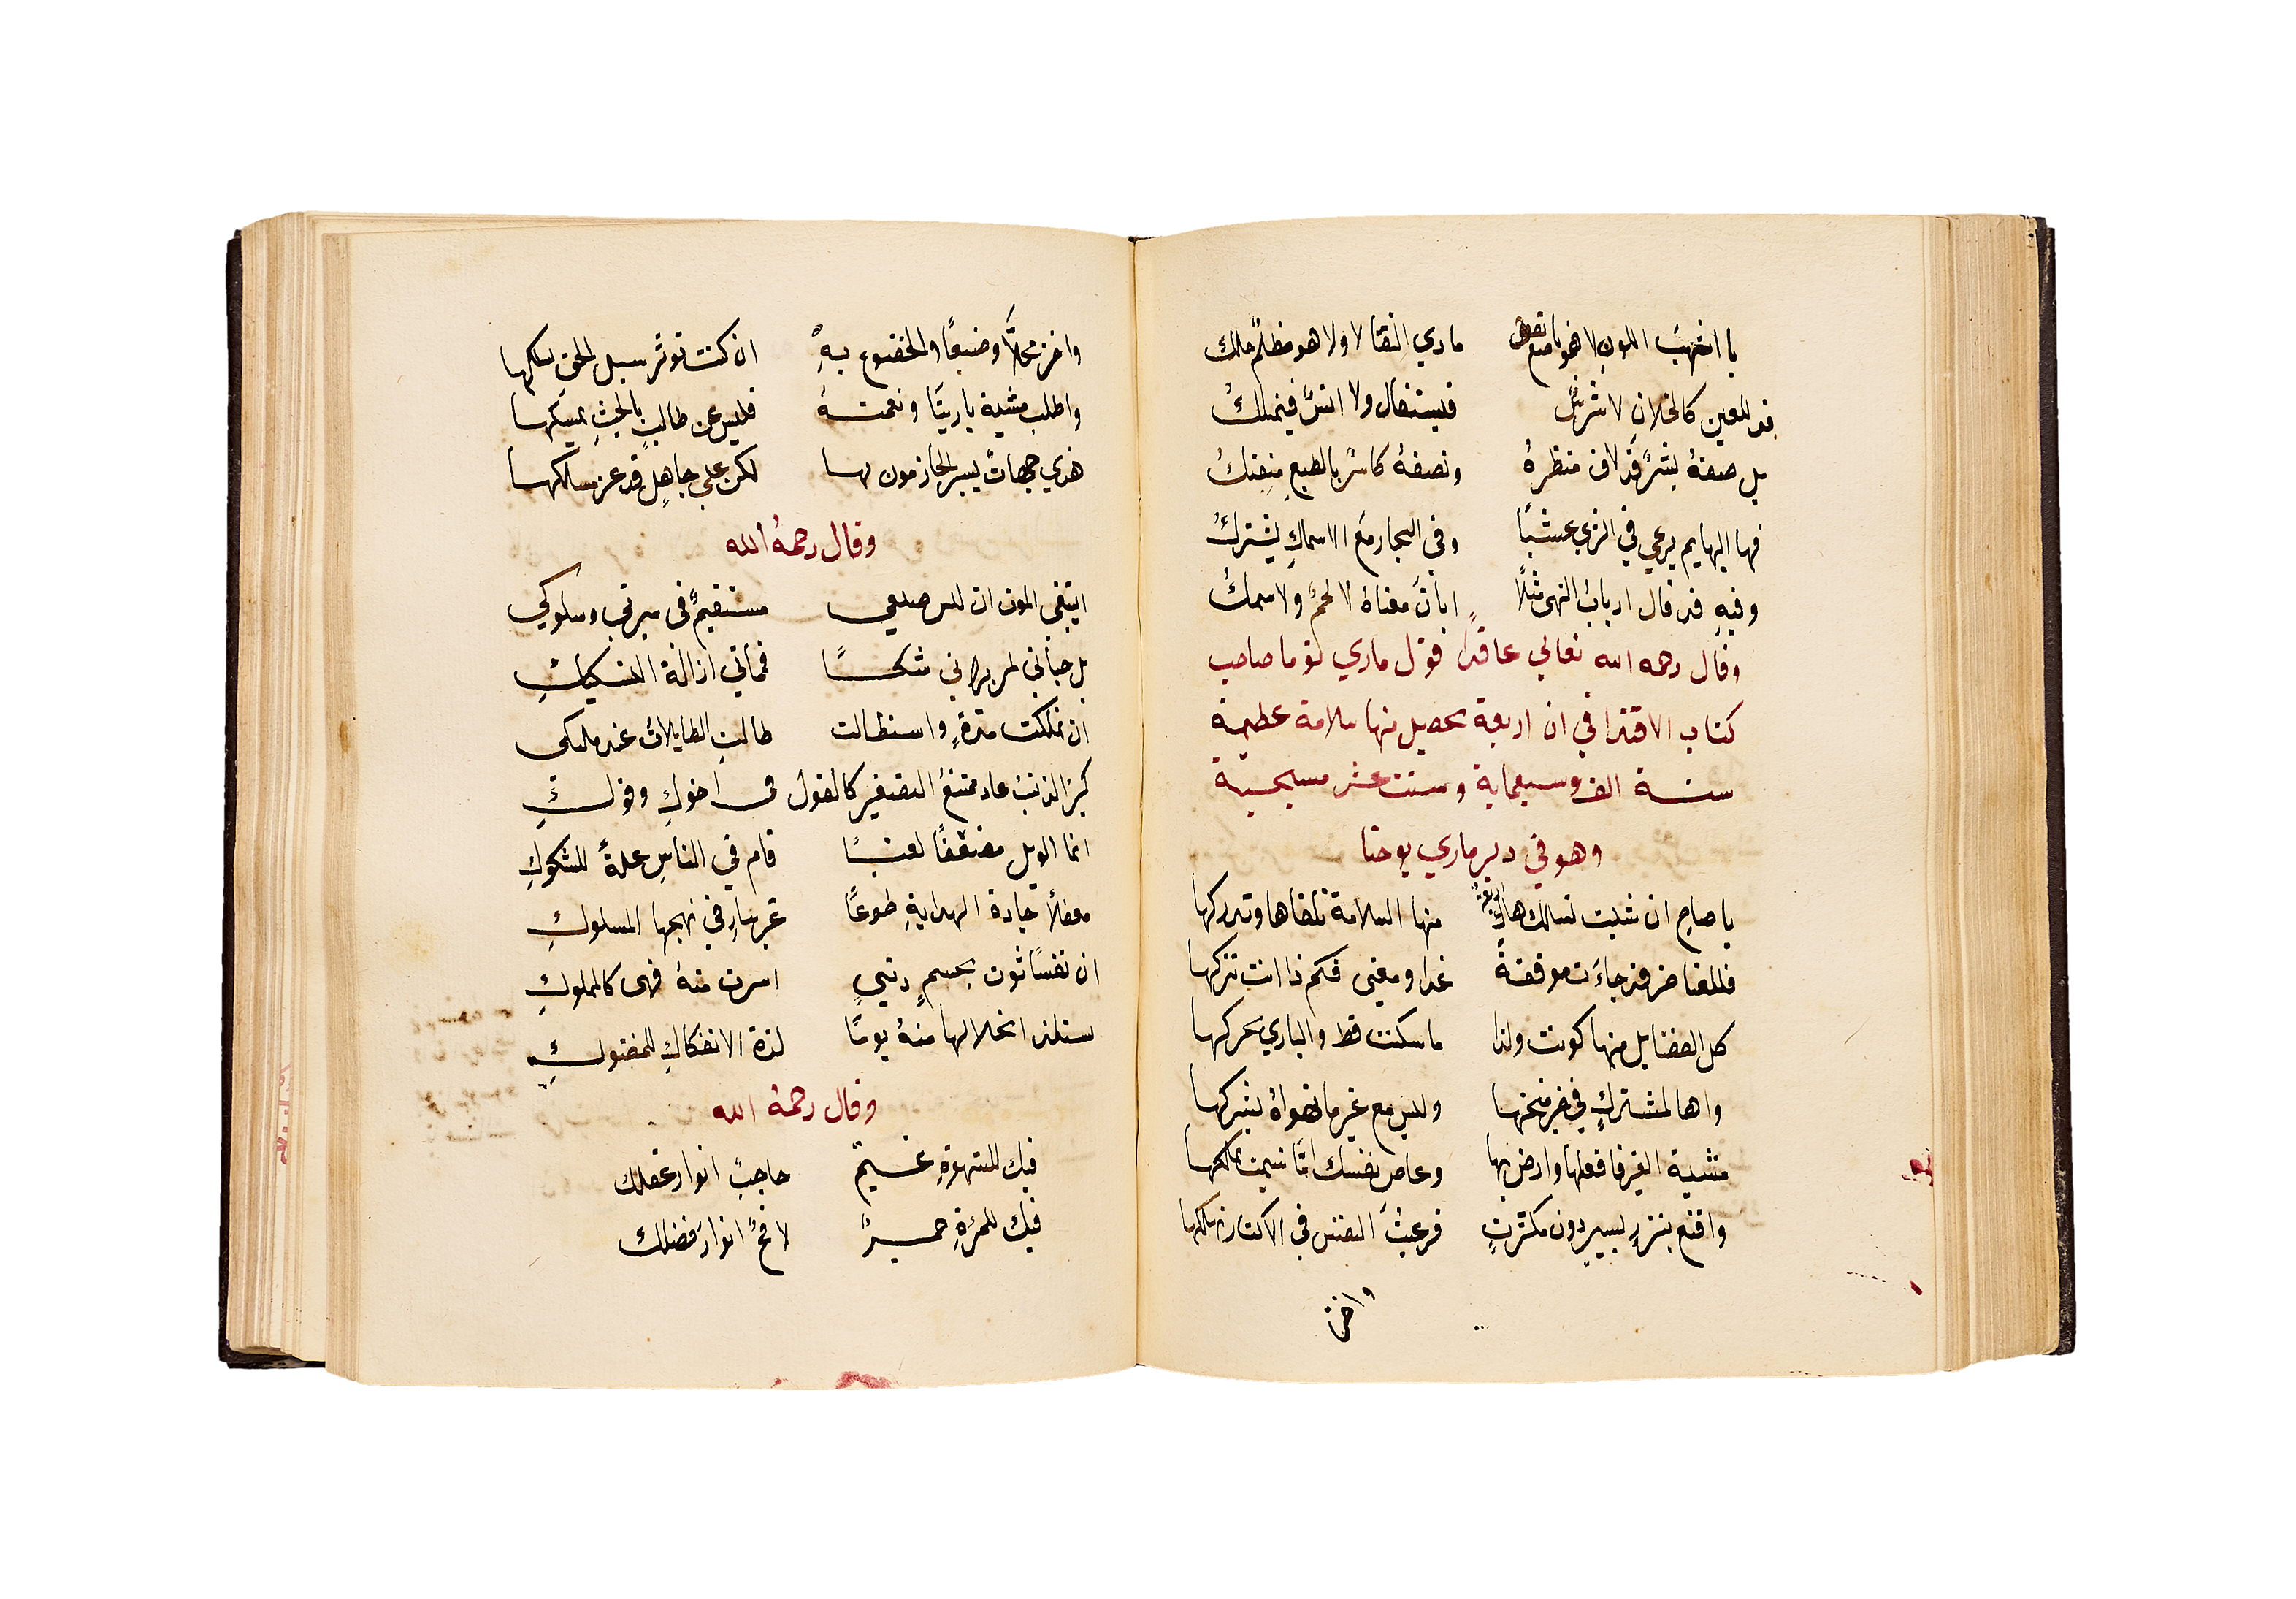 يا اشهب اللون لا هو ماري النقا لا ولا هو مظلم ملك
قد للعين كالخلان لا بشر فيستقال ولا انس فيمتلك
بل صفه بشر قد لاق منظره ونصفه كاسر بالطبع
فها البهايم يرعي في الزي عشبا وفي البحار مع الاسماك يشترك
وفيه قد قال ارباب النهى مثلا ابات معناه لا لحم ولا سمك
وقال رحمه الله تعالي عاقدا قول ماري توما صاحب
كتاب الاقتدا في ان اربعة يحصل منها سلامة عظيمة
سنة الف وسبعماية وستت عشر مسيحية
وهو في دير ماري يوحنا
يا صاح ان شيت تسالك هاك اربعة منها السلامة تلقاها وتدركها
غدا ومعنى فكم ذا انت تتركها
كل الفضايل منها كونت ولذا ما سكنت قط والباري يحركها
واها لمشترك في وليس مع غير ما تهواه يشركها
مشية الغير فافعلها وارض بها وعاص نفسك امّا شيت تملكها
واقنع بنزر يسير دون مكثرت فرغبت النفس في الاكثار تهلكها
واختر
واختر محلاً وضيعًا والخضوع به ان كنت توثر سبل الحق تسلكها
واطلب مشية بارينا ونعمته فليس عن طالب بالحث يمسكها
هذي جهات يسير الحازمون لها لكن على جاهل قد عز مسلكها
وقال رحمه الله
ايتقي الموت ان ليس صديقي مستقيم في سيرتي وسلوكي
بل حياتي لم يراني شكا فماتي ازالة التشكيك
ان تملكت مدة واستطالت طالت الطايلات عند مليكي
كبر الذنب عاد ممتنع التصغير كالقول في اخوك وفوك
انما الويل مضعفًا لعتب قام في الناس علة للشكوك
معفلاً جادة الهداية طوعًا غير سار في نهجها المسلوك
ان نفسًا ثوت بجسم دني اسرت منه فهي كالمملوك
ستلذ انحلالها منه يومًا لذة الانفكاك للمضنوك
وقال رحمه الله
فيك للشهوة غيم حاجب انوار عقلك
فيك للمرة حر لافح انوار فضلك